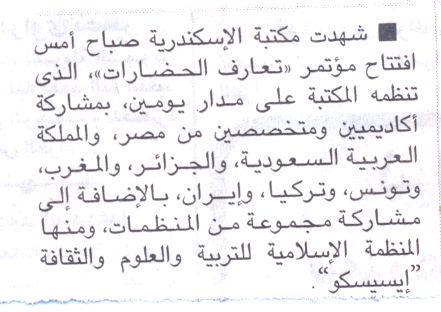 ■ شهدت مكتبة الإسكندرية صباح أمس
افتتاح مؤتمر «تعارف الحضارات»، الذى
تنظمه المكتبة على مدار يومين، بمشاركة
أكاديميين ومتخصصين من مصر، والمملكة
العربية السعودية، والجزائر، والمغرب،
وتونس، وتركيا، وإيران، بالإضافة إلى
مشاركة مجموعة من المنظمات، ومنها
المنظمة الإسلامية للتربية والعلوم والثقافة
"إيسيسكو".